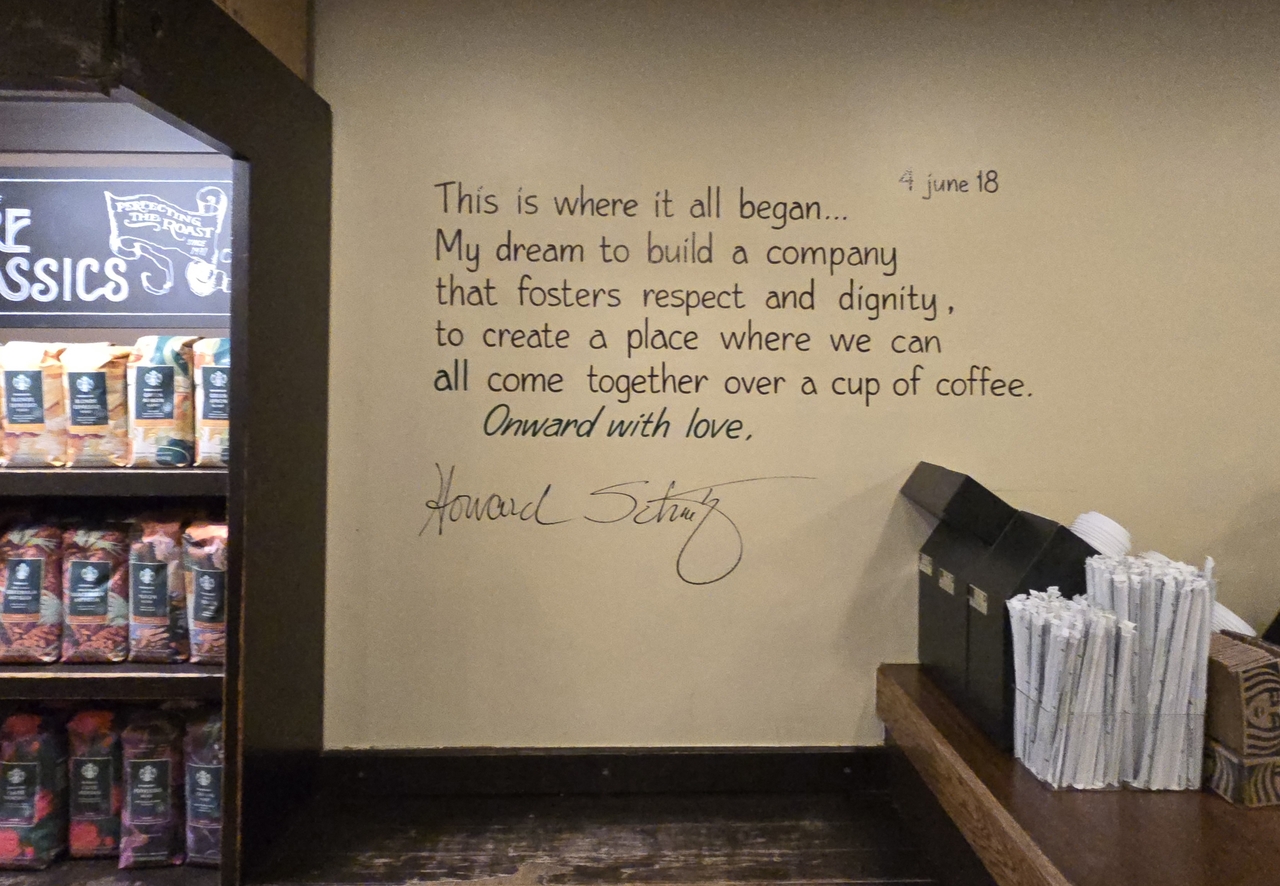 RE
ASSICS
PERFECTING
THE ROAST
SINCE
4 june 18
This is where it all began...
My dream to build a company
that fosters respect and dignity,
to create a place where we can
all come together over a cup of coffee.
Onward with love,
Howard Schultz